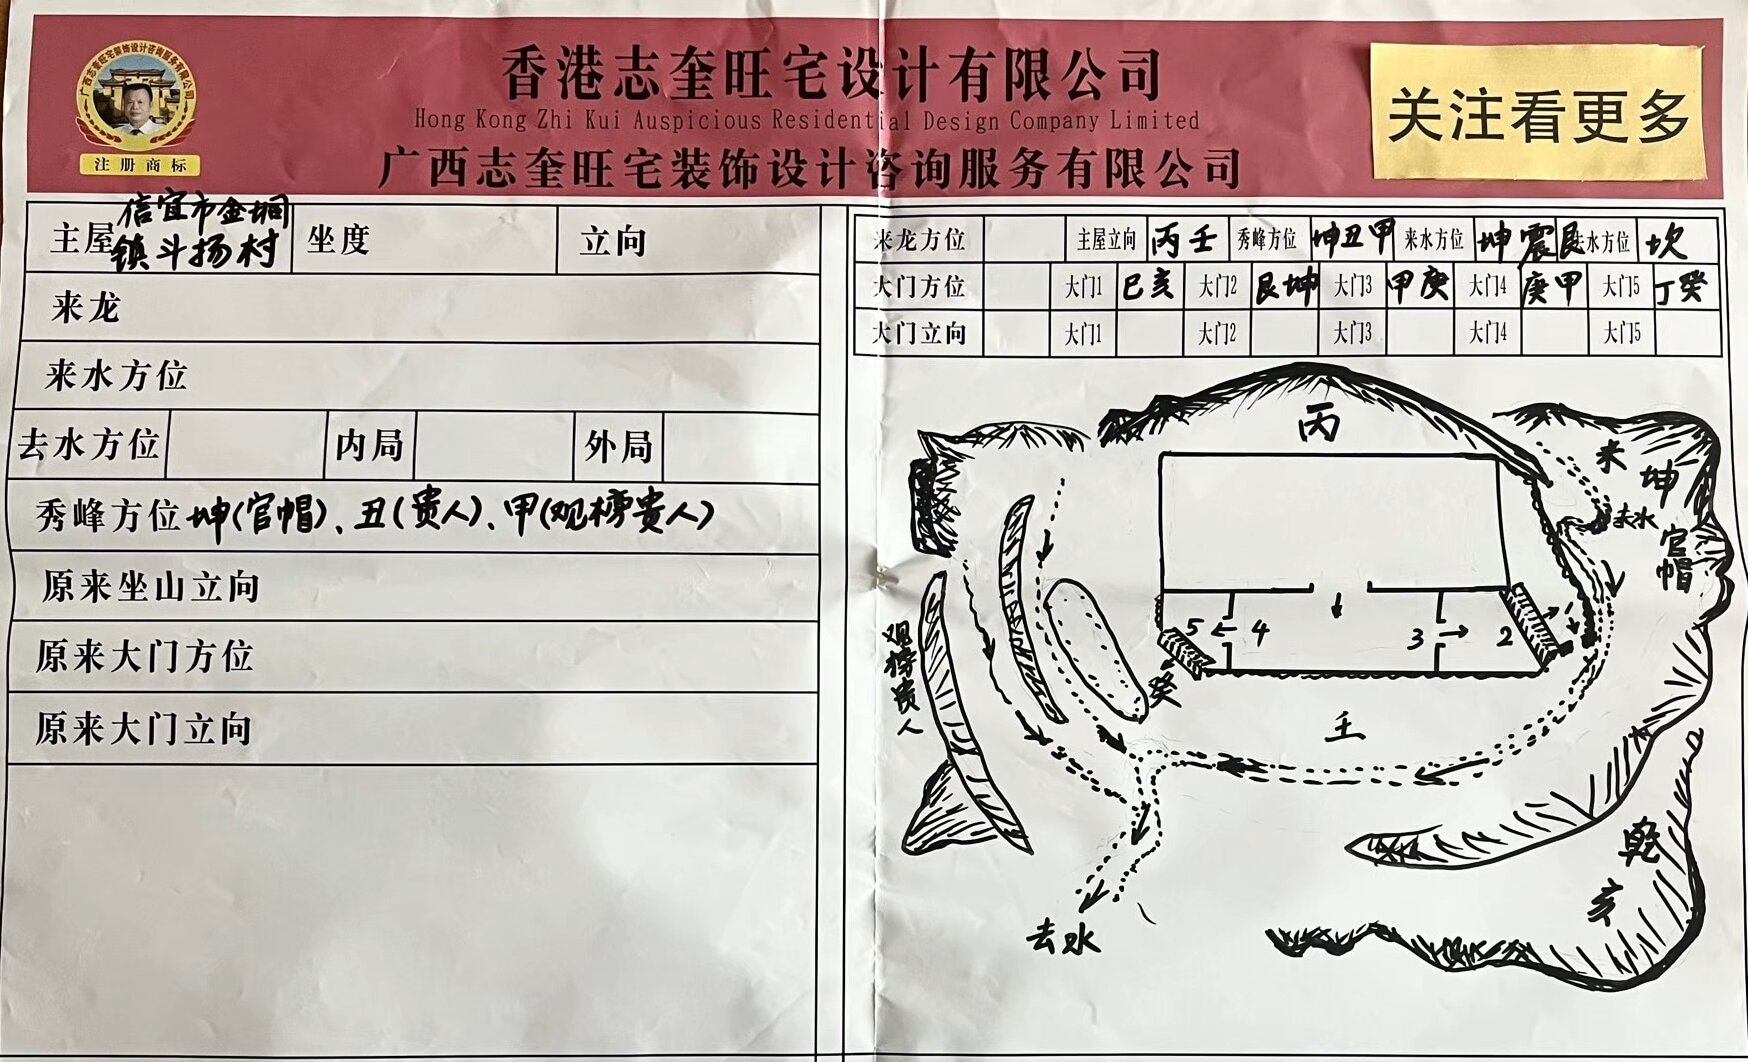 广西志奎旺宅装饰设计咨询服务有限公司
注册商标
香港志奎旺宅设计有限公司
Hong Kong Zhi Kui Auspicious Residential Design Company Limited
广西志奎旺宅装饰设计咨询服务有限公司
关注看更多
主屋 信宜市金垌镇斗扬村 坐度 立向
来龙
来水方位
去水方位 内局 外局
秀峰方位 坤(官帽)、丑(贵人)、甲(观榜贵人)
原来坐山立向
原来大门方位
原来大门立向
来龙方位 主屋立向 丙壬 秀峰方位 坤丑甲 来水方位 坤震艮 去水方位 坎
大门方位 大门1 巳亥 大门2 艮坤 大门3 甲庚 大门4 庚甲 大门5 丁癸
大门立向 大门1 大门2 大门3 大门4 大门5
丙
来
坤
去水
官帽
5 4 3 2
观榜贵人
癸
壬
乾
亥
去水